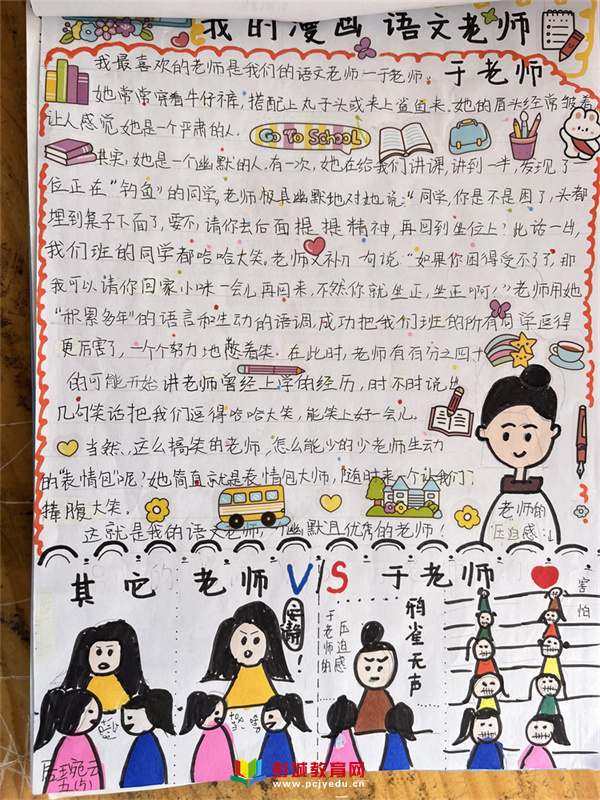 我的漫画语文老师
于老师
我最喜欢的老师是我们的语文老师一于老师。
她常常穿着牛仔裤,搭配上丸子头或夹上鲨鱼夹,她的眉头经常皱着
让人感觉她是一个严肃的人。
GO TO SCHOOL
其实,她是一个幽默的人,有一次,她在给我们讲课,讲到一半,发现了一
位正在“钓鱼”的同学,老师极具幽默地对她说:“同学,你是不是困了,头都
埋到桌子下面了,要不,请你去后面提提精神,再回到坐位上?此话一出,
我们班的同学都哈哈大笑。老师又补一句说“如果你困得受不了了,那
我可以请你回家小咪一会儿再回来,不然你就坐正,坐正啊!”老师用她
“积累多年”的语言和生动的语调,成功把我们班的所有同学逗得
更厉害了,一个个努力地憋着笑。在此时,老师有百分之四十
的可能开始讲老师曾经上学的经历,时不时说出
几句笑话把我们逗得哈哈大笑,能笑上好一会儿。
当然,这么搞笑的老师,怎么能少的少老师生动
的“表情包”呢?她简直就是表情包大师,随时来一个让我们
捧腹大笑。
这就是我的语文老师,一个幽默且优秀的老师!
老师的
压迫感:↓
其它老师 V/S 于老师
安静!
于老师的
压迫感
鸦雀无声
害怕
五(5)
彭城教育网
www.pcjyedu.cn